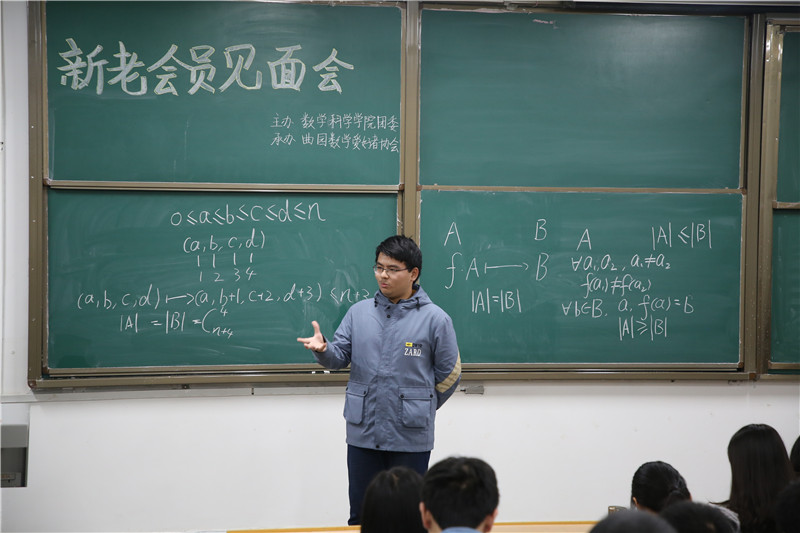 新老会员见面会
主办 数学科学学院团委
承办 曲园数学爱好者协会
0≤a≤b≤c≤d≤n
(a,b,c,d)
1 2 3 4
(a,b,c,d)↦(a,b+1,c+2,d+3)≤n+3
|A|=|B|=C⁴ₙ₊₄
A B
f A↦B
|A|=|B|
A |A|≤|B|
∀a₁a₂, a₁≠a₂
f(a₁)≠f(a₂)
∀b∈B, a, f(a)=b
|A|≥|B|
ZARQ